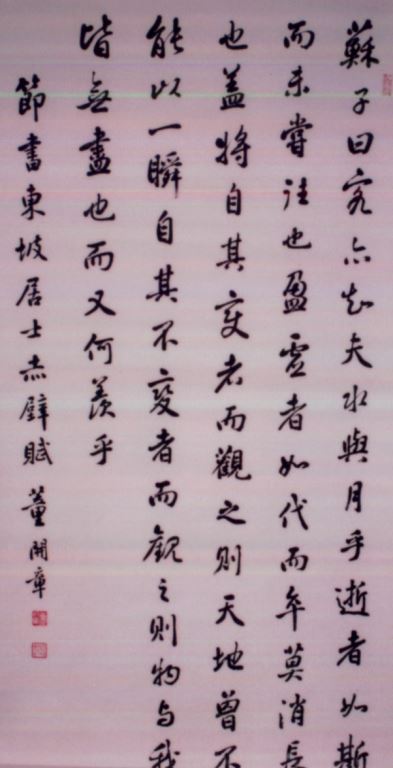 蘇子曰客亦知夫水與月乎逝者如斯
而未嘗往也盈虛者如代而卒莫消長
也盖將自其變者而觀之則天地曾不
能以一瞬自其不變者而觀之則物与我
皆無盡也而又何羨乎
節書東坡居士赤壁賦 董開章